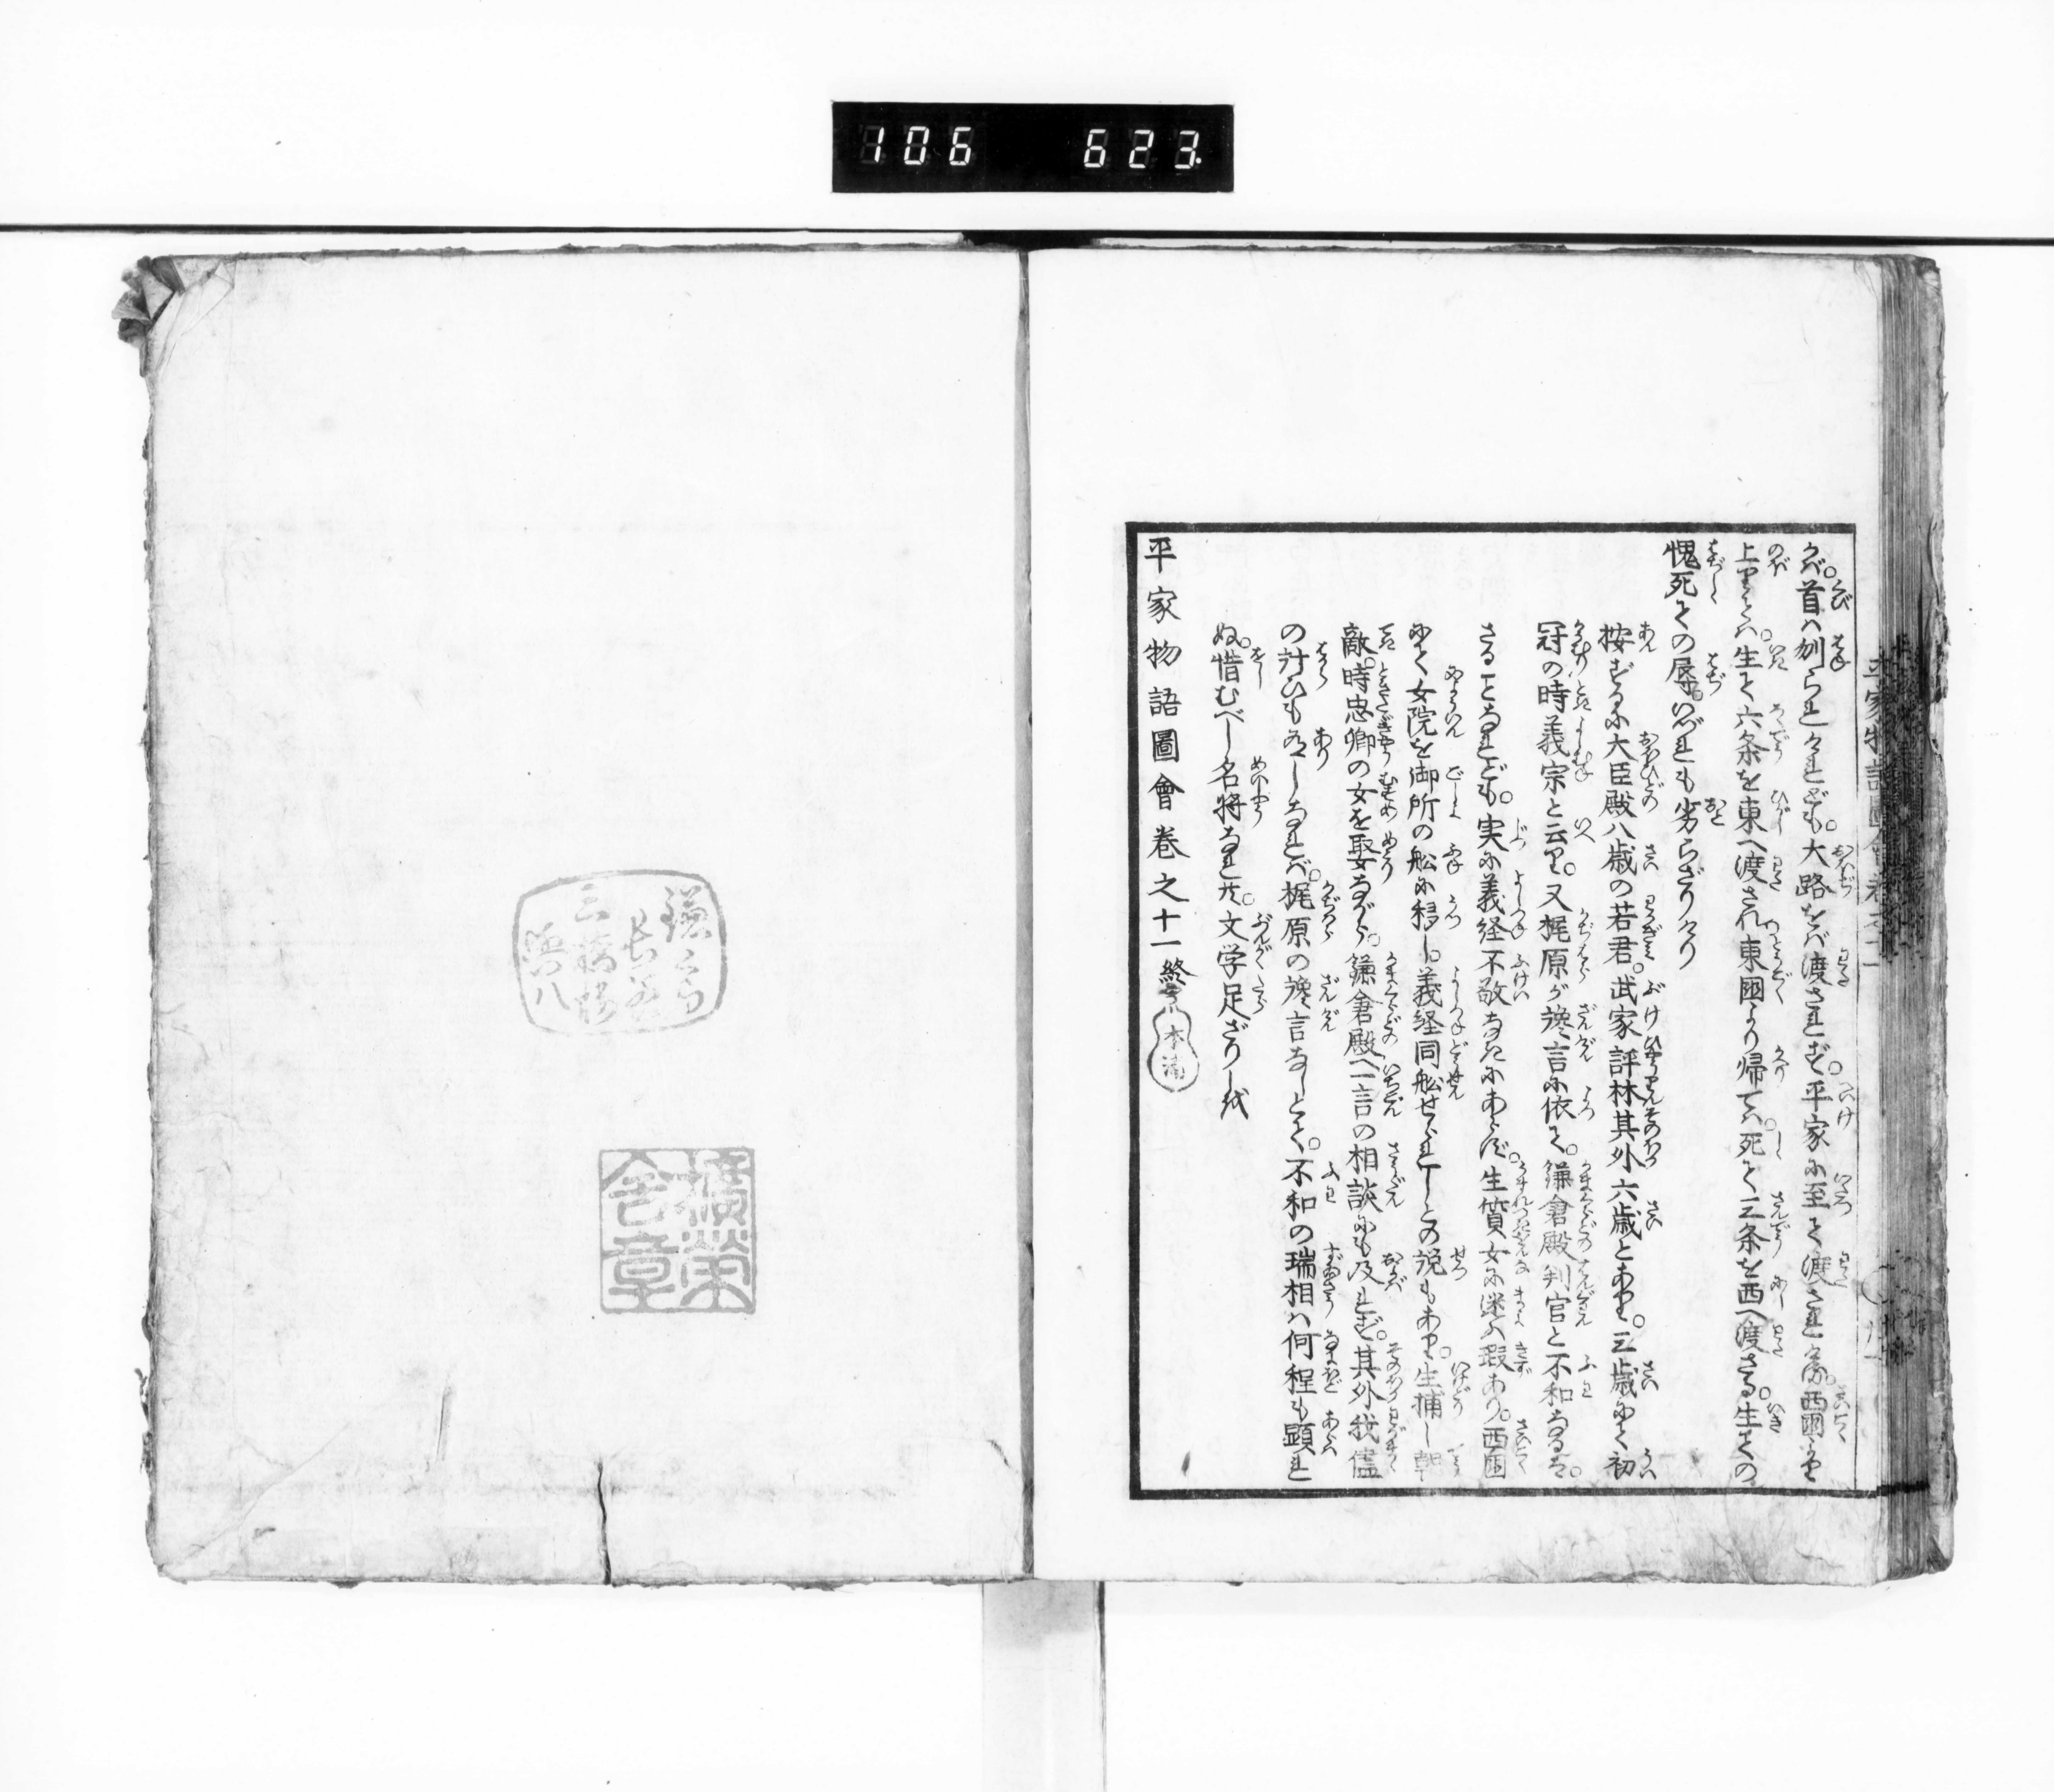 106 623
かば。首は刎られけれども。大路をば渡されず。平家に至て渡されける。西国より
上りては。生て六条を東へ渡され東国より帰ては。死て三条を西へ渡さる。生ての
愧死ての辱。いづれも劣らざりけり
按ずるに大臣殿八歳の若君。武家評林其外六歳とあり。三歳にて初
冠の時義宗と云り。又梶原が讒言に依て。鎌倉殿判官と不和なるは。
さることなれども。実に義経不敬なきにあらず。生質女に迷ふ瑕あり。西国
にて女院を御所の舩に移し。義経同舩せられしとの説もあり。生捕し朝
敵。時忠卿の女を娶ながら。鎌倉殿へ一言の相談にも及ばれず。其外我儘
の計ひも有しなれば。梶原の讒言なしとて。不和の瑞相は何程も顕れ
ぬ。惜むべし名将なれ共。文学足ざりし哉
平家物語圖會巻之十一終
三橋
八